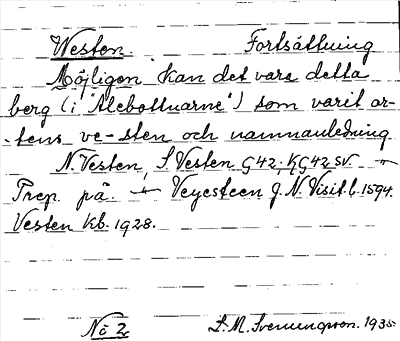 Westen. Fortsättning
Möjligen kan det vara detta
berg (i "Alebottnarne") som varit or-
tens ve-sten och namnanledning
N. Vesten, S. Vesten G42; KG42 SV
Prep. på. Veyesteen J. N. Visit. b. 1594.
Vesten Kb. 1928.
Nö 2 S. M. Svenungsson. 1935.